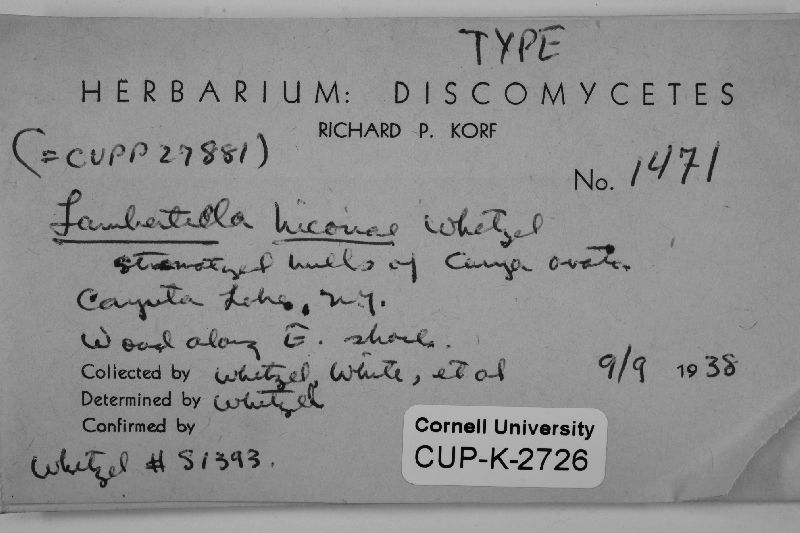 TYPE
HERBARIUM: DISCOMYCETES
RICHARD P. KORF
(=CUPP 27881)
No. 1471
Lambertella hicoriae Whetzel
stromatized hulls of Carya ovata.
Cayuta Lake, N.Y.
Wood along E. shore.
Collected by Whetzel, White, et al 9/9 1938
Determined by Whetzel
Confirmed by
Whetzel # S1393.
Cornell University
CUP-K-2726